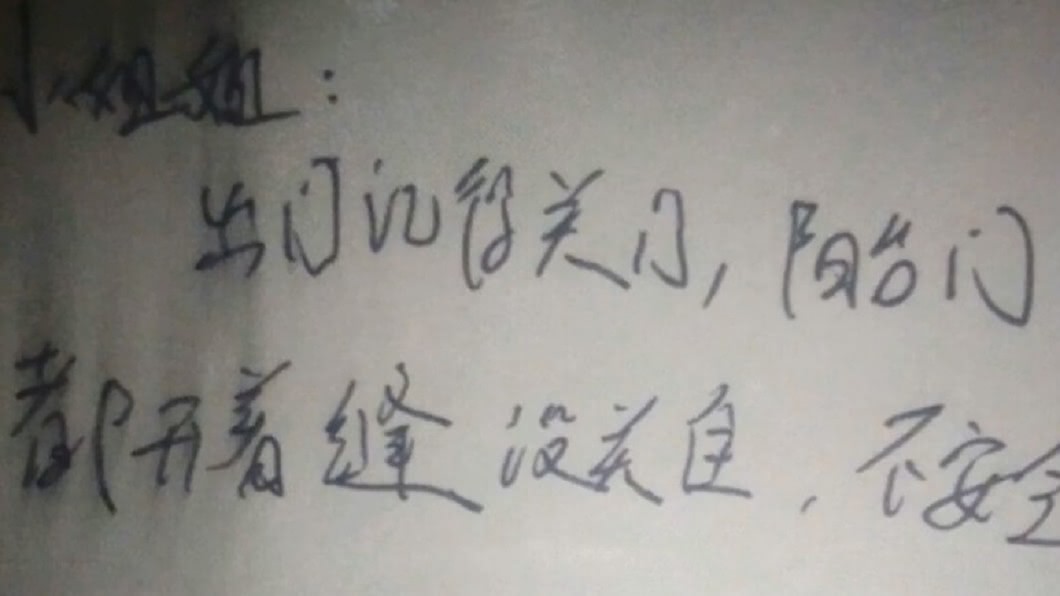 小姐姐：
出门记得关门，阳台门
都开着缝没关自，不安全